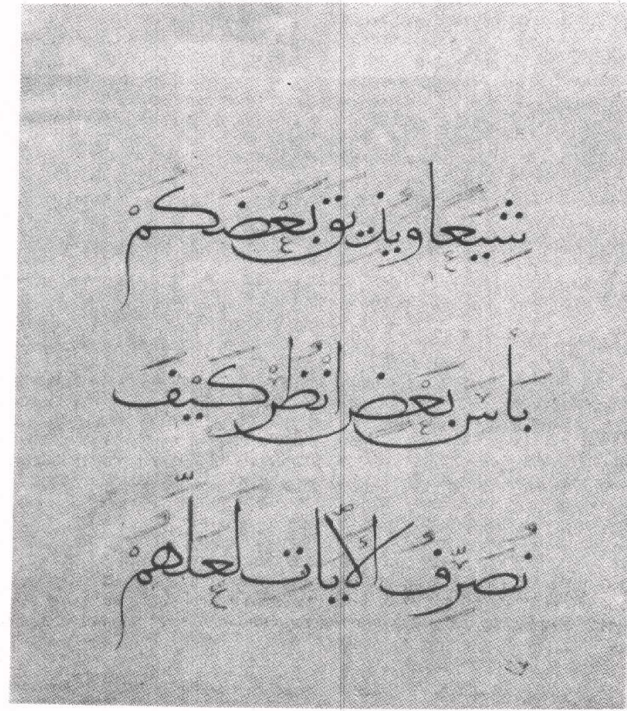 شِيَعًا وَيُذِيقَ بَعْضَكُمْ
بَأْسَ بَعْضٍ انْظُرْ كَيْفَ
نُصَرِّفُ الْآيَاتِ لَعَلَّهُمْ